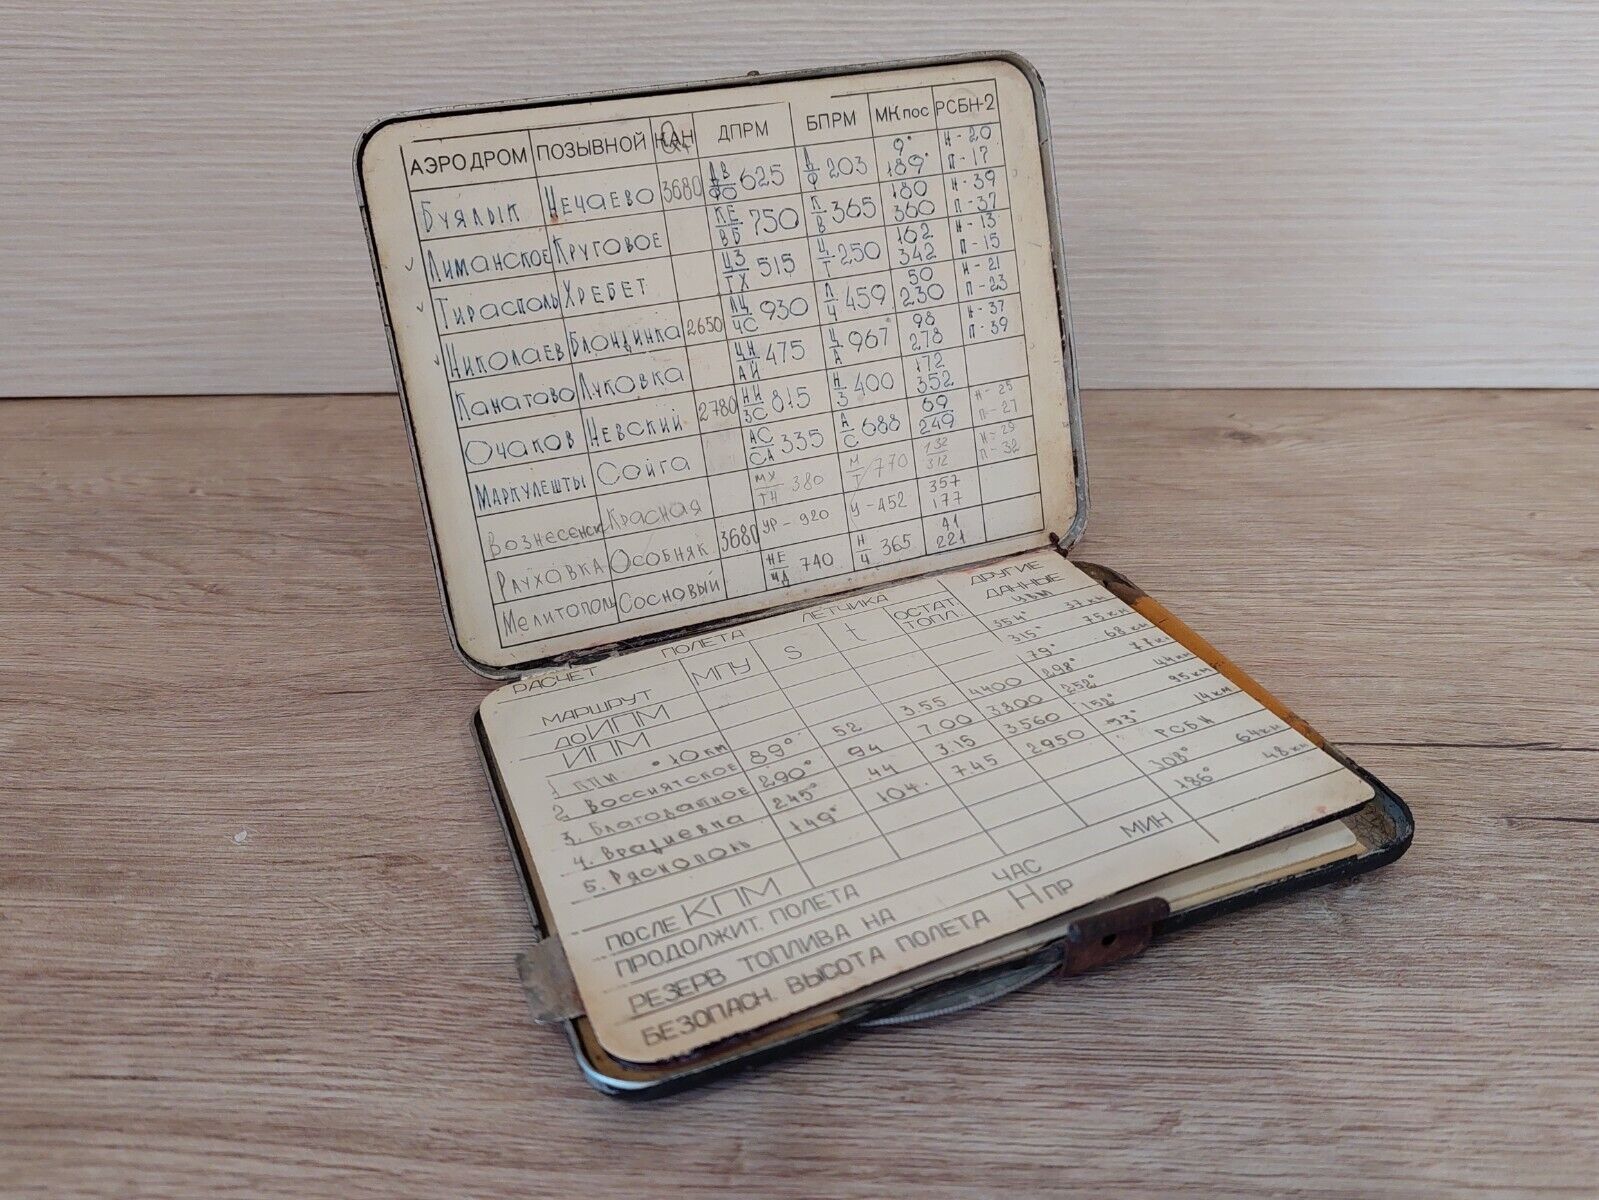 АЭРОДРОМ ПОЗЫВНОЙ КАН ДПРМ БПРМ МКпос РСБН-2
Буялык Нечаево 3680 ДВ/ФО 625 Д/Ф 203 9° 189° Н-20 П-17
Лиманское Круговое КЕ/ВБ 750 К/В 365 180 360 Н-39 П-37
Тирасполь Хребет ЦЗ/ТХ 515 Ц/Т 250 162 342 Н-13 П-15
Николаев Блондинка 2650 ЛЦ/ЧС 930 Л/Ч 459 50 230 Н-21 П-23
Канатово Луковка ЦН/АЙ 475 Ц/А 967 98 278 Н-37 П-39
Очаков Невский 2780 НИ/ЗС 815 Н/З 400 172 352
Маркулешты Сойга АС/СА 335 А/С 688 69 249 Н-25 П-27
Вознесенск Красная МХ/ТН 380 М/Т 770 132 312 Н-29 П-32
Рауховка Особняк 3680 УР-920 У-452 357 177
Мелитополь Сосновый НЕ/ЧД 740 Н/Ч 365 41 221
РАСЧЕТ ПОЛЕТА ЛЕТЧИКА
МАРШРУТ МПУ S t ОСТАТ. ТОПЛ. ДРУГИЕ ДАННЫЕ
ДО ИПМ
ИПМ 354° 37 км
315° 75 км
1. ПТМ • 10 км 89° 52 3.55 4400 79° 68 км
2. Воссиятское 290° 94 7.00 3800 298° 77 км
3. Благодатное 245° 44 3.15 3560 252° 44 км
4. Врадиевка 149° 104 7.45 2950 152° 95 км
5. Ряснополь 93° 14 км
РСБН
308° 64 км
186° 48 км
ПОСЛЕ КПМ
ПРОДОЛЖИТ. ПОЛЕТА ЧАС МИН
РЕЗЕРВ ТОПЛИВА НА
БЕЗОПАСН. ВЫСОТА ПОЛЕТА Н ПР